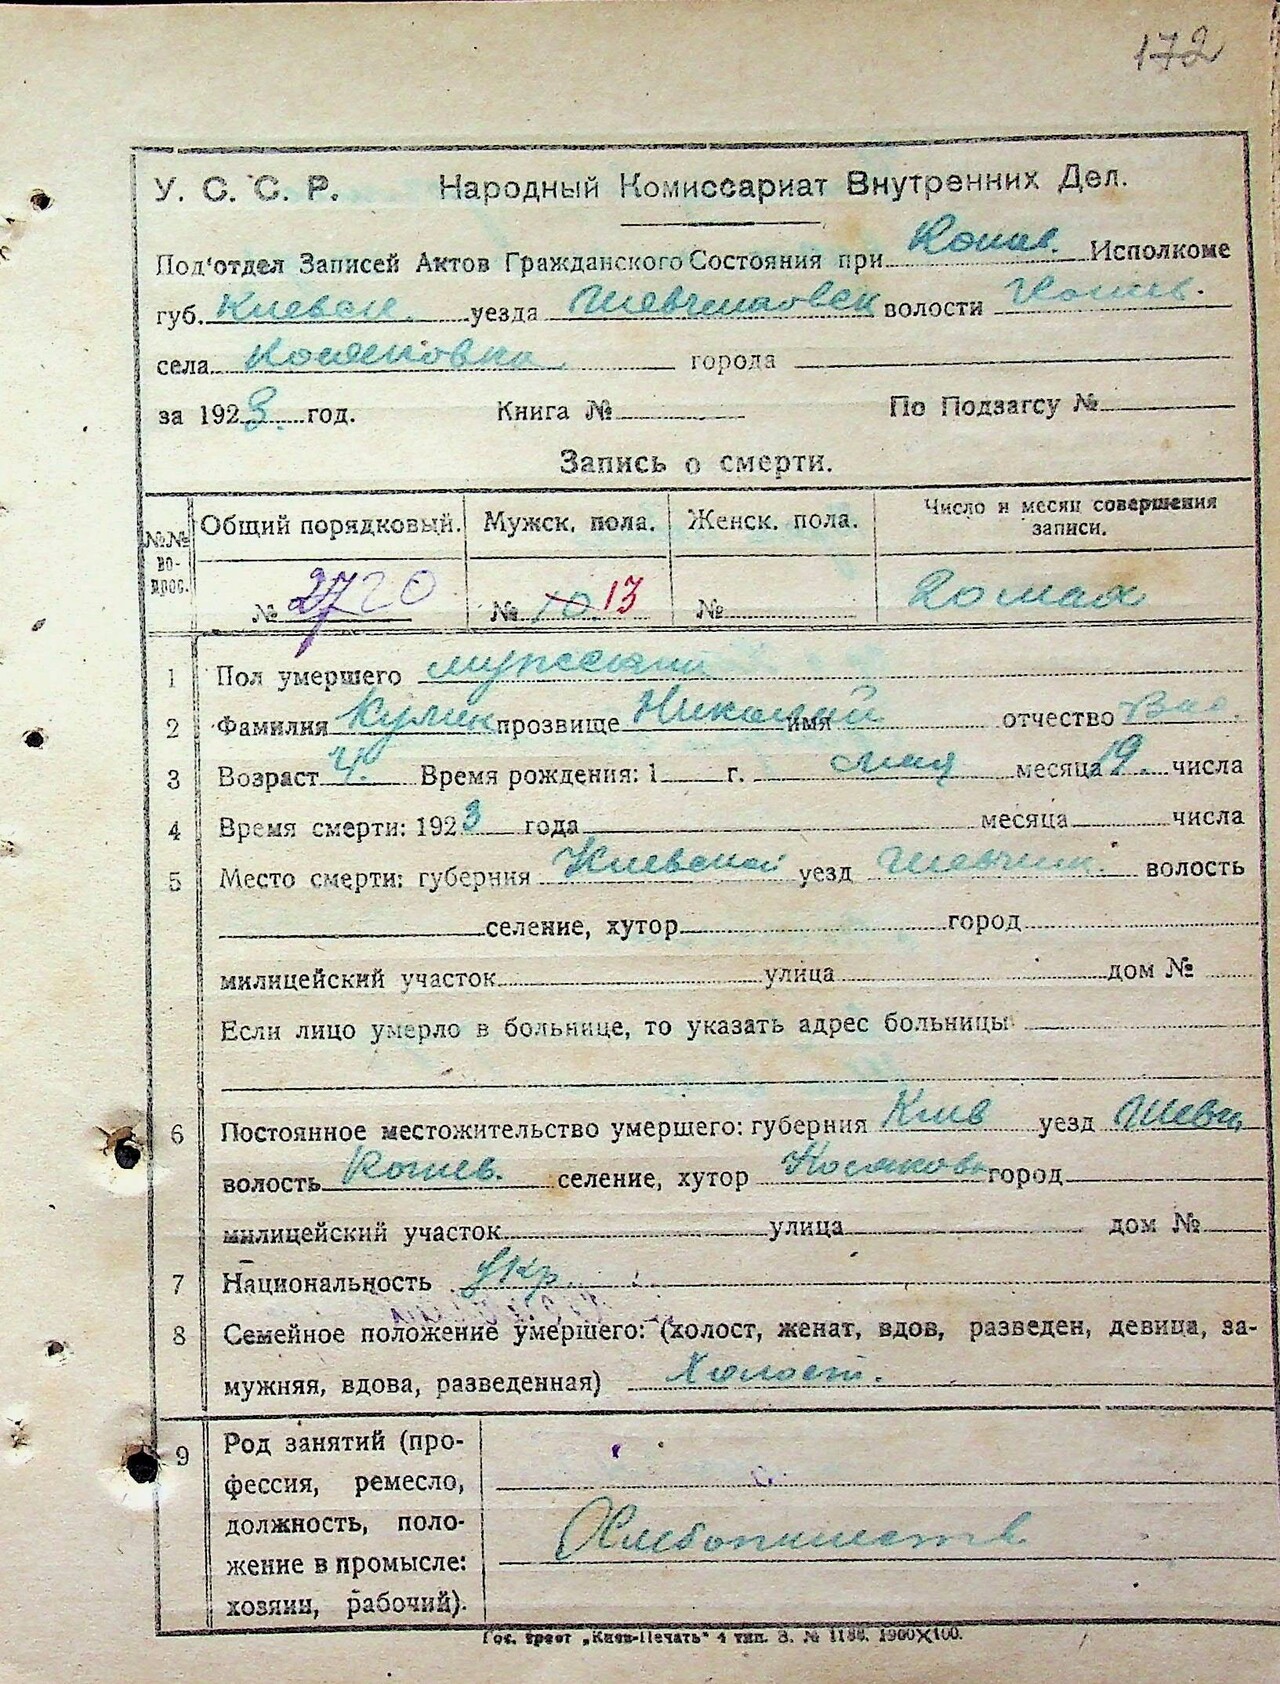 172
У. С. С. Р. Народный Комиссариат Внутренних Дел.
Под'отдел Записей Актов Гражданского Состояния при Исполкоме
губ. Киевск. уезда волости
села города
за 1923 год. Книга № По Подзагсу №
Запись о смерти.
№№ во-прос. Общий порядковый. Мужск. пола. Женск. пола. Число и месяц совершения записи.
№ 27 20 № 10 13 № 20 мая
1 Пол умершего мужеский
2 Фамилия Кулик прозвище Николай имя отчество Вас.
3 Возраст 4. Время рождения: 1 г. мая месяца 19. числа
4 Время смерти: 1923 года месяца числа
5 Место смерти: губерния Киевской уезд Шевченк. волость
селение, хутор город
милицейский участок улица дом №
Если лицо умерло в больнице, то указать адрес больницы
6 Постоянное местожительство умершего: губерния Киев уезд Шевч
волость селение, хутор город
милицейский участок улица дом №
7 Национальность укр.
8 Семейное положение умершего: (холост, женат, вдов, разведен, девица, за-
мужняя, вдова, разведенная) Холост.
9 Род занятий (про-
фессия, ремесло,
должность, поло-
жение в промысле:
хозяин, рабочий).
Гос. трест „Киев-Печать" 4 тип. З. № 1186. 1900X100.